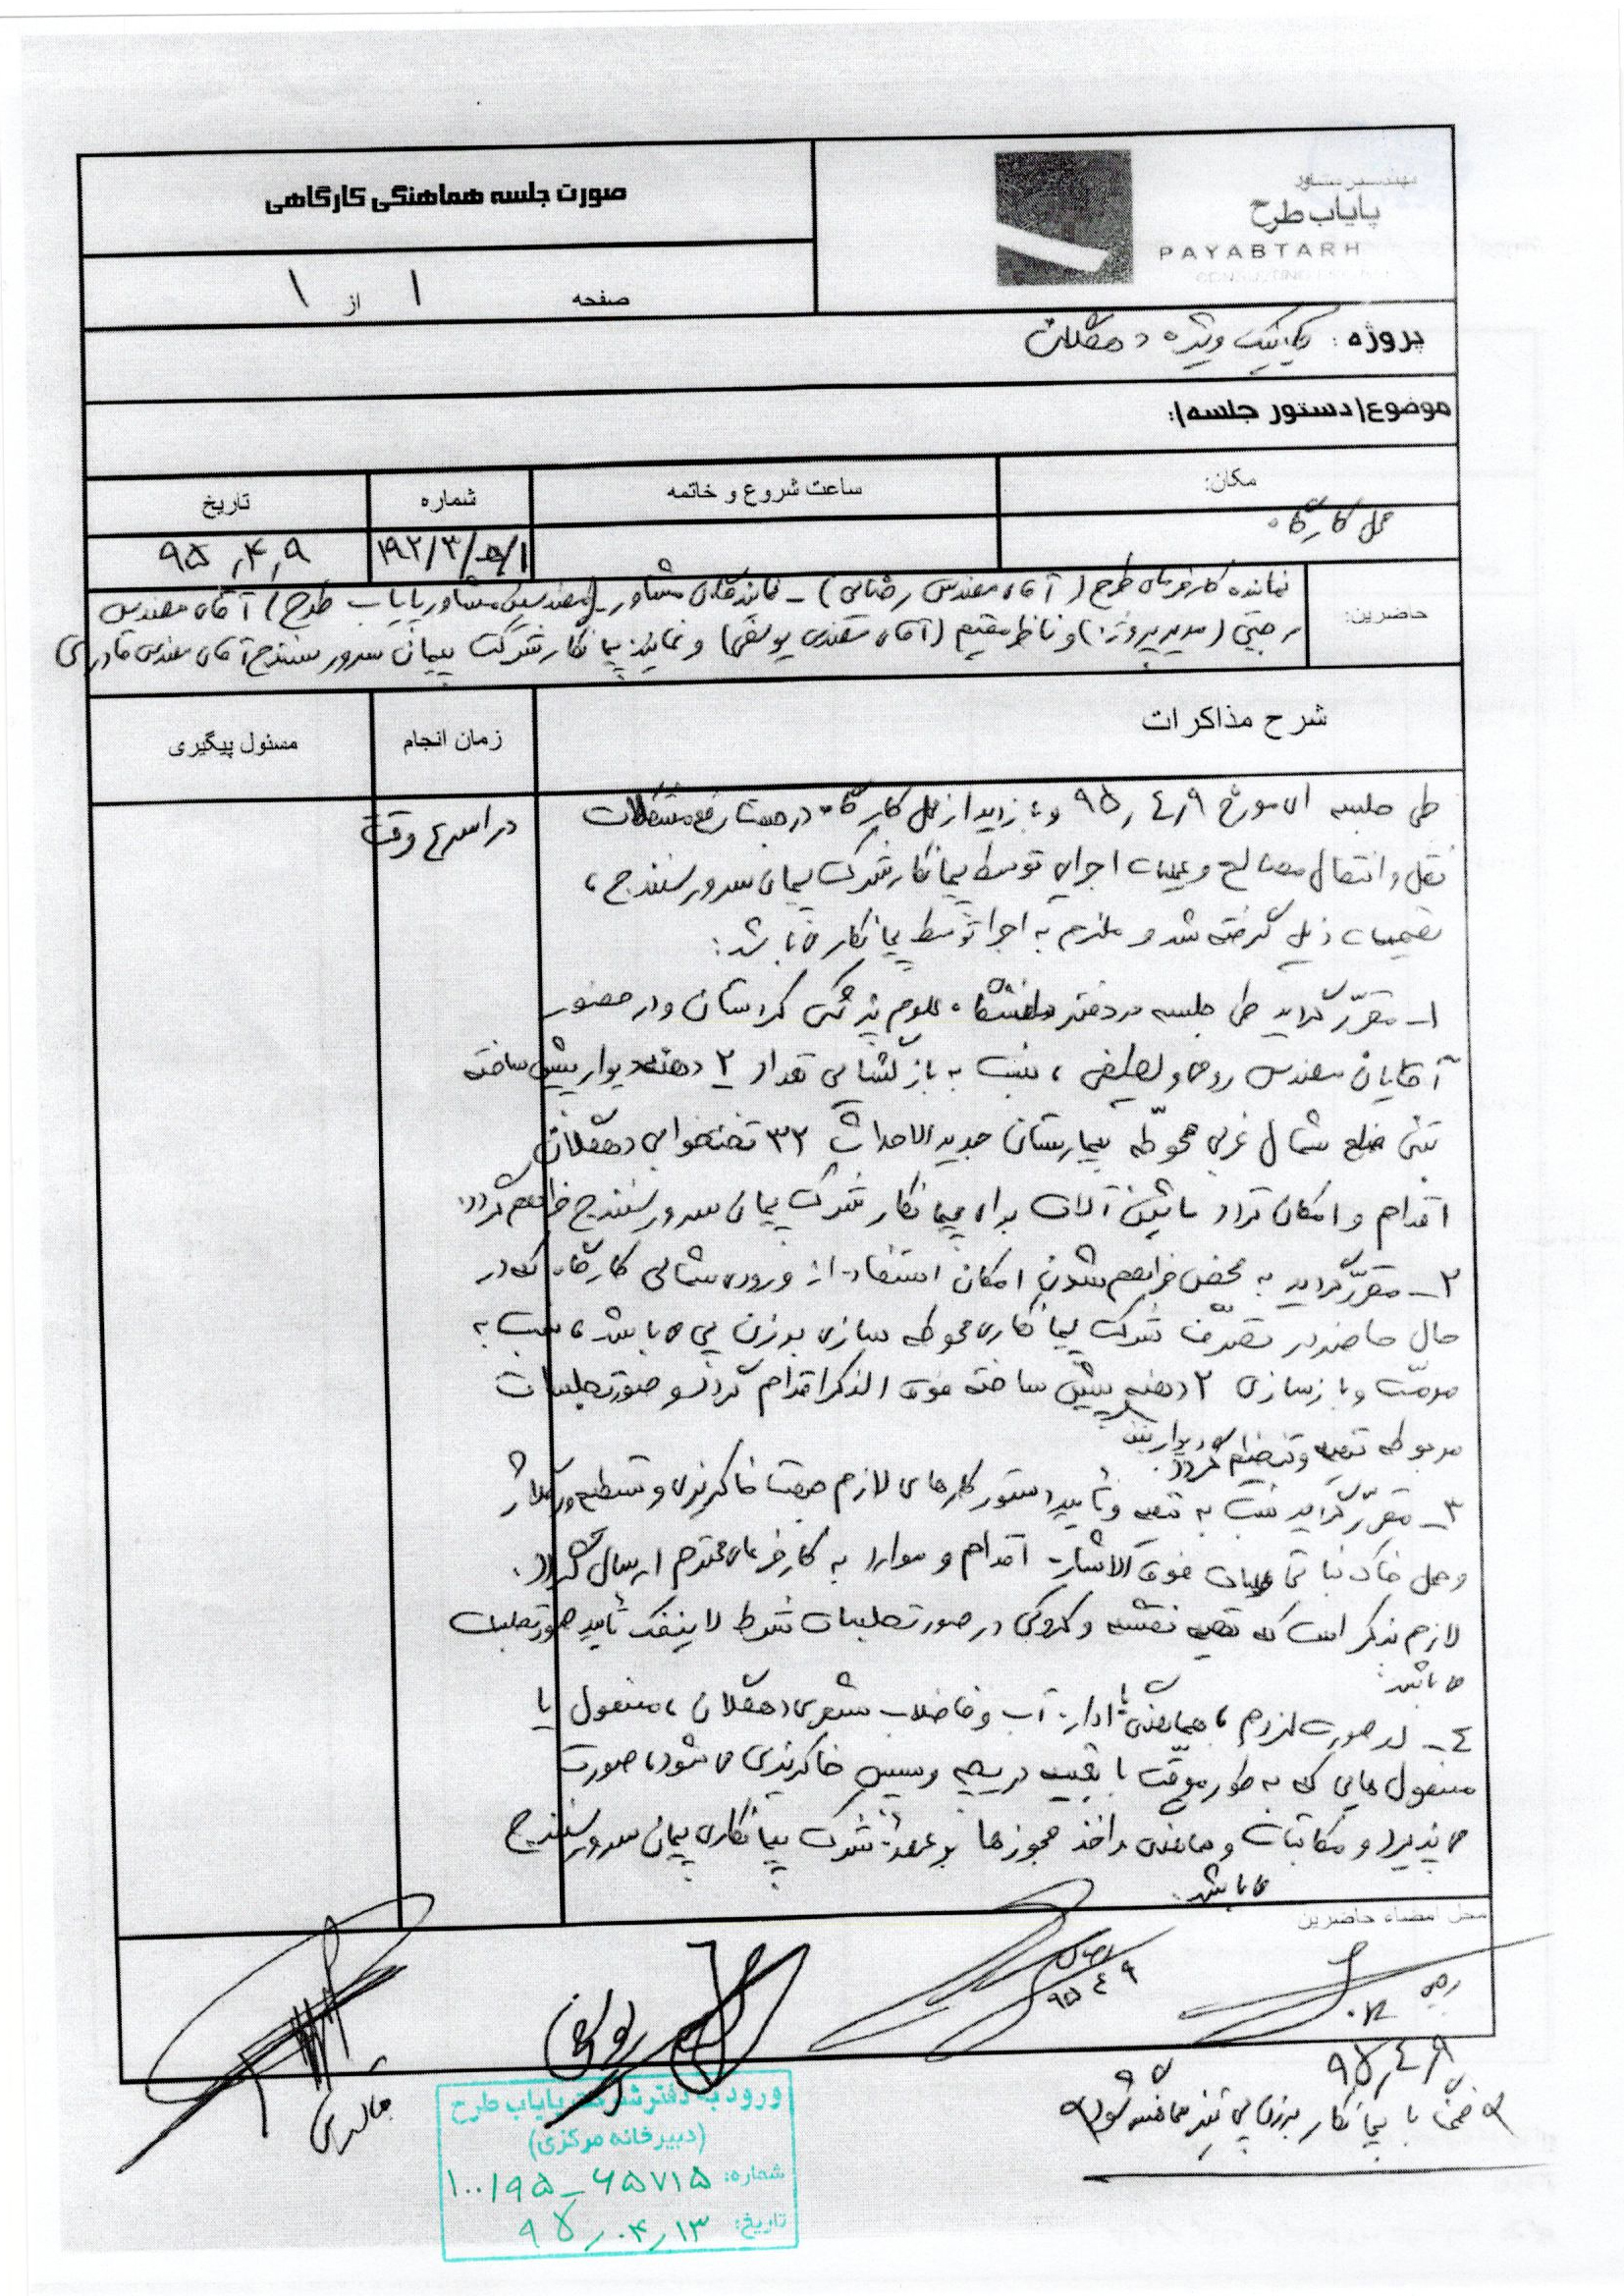 مهندسین مشاور
پایاب طرح
PAYABTARH
CONSULTING ENGINEERS
صورت جلسه هماهنگی کارگاهی
صفحه ۱ از ۱
پروژه : کلینیک ویژه دهگلان
موضوع(دستور جلسه):
مکان: ساعت شروع و خاتمه شماره تاریخ
محل کارگاه ۹۵٫۴٫۹
حاضرین: نماینده کارفرمای طرح (آقای مهندس رضایی) – نمایندگان مشاور – (مهندسین مشاور پایاب طرح) آقای مهندس
رجبی (مدیر پروژه) و ناظر مقیم (آقای مهندس یوسفی) و نماینده پیمانکار شرکت پیمان سرور سنندج آقای مهندس قادری
شرح مذاکرات زمان انجام مسئول پیگیری
طی جلسه ای مورخ ۹۵٫۴٫۹ و بازدید از محل کارگاه در جهت رفع مشکلات در اسرع وقت
نقل و انتقال مصالح و عملیات اجرایی توسط پیمانکار شرکت پیمان سرور سنندج ،
تصمیمات ذیل گرفته شد و ملزم به اجرا توسط پیمانکار می باشد :
۱– مقرّر گردید طی جلسه در دفتر دانشگاه علوم پزشکی کردستان و در حضور
آقایان مهندس روحی و لطیفی ، نسبت به بازگشایی تعداد ۲ دهنه دیوار پیش ساخته
بتنی ضلع شمال غربی محوّطه بیمارستان جدید الاحداث ۳۲ تختخوابی دهگلان
اقدام و امکان تردد ماشین آلات برای پیمانکار شرکت پیمان سرور سنندج فراهم گردد.
۲– مقرّر گردید به محض فراهم شدن امکان استفاده از ورودی شمالی کارگاه که در
حال حاضر در تصرّف شرکت پیمانکاری محوطه سازی برزن پی می باشد ، نسبت به
مرمّت و بازسازی ۲ دهنه پیش ساخته فوق الذکر اقدام گردد و صورتجلسات
دیوار بتنی
مربوطه تهیه و تنظیم گردد.
۳– مقرّر گردید نسبت به تهیه و تأیید دستور کارهای لازم جهت خاکریزی و تسطیح و رگلاژ
و حمل خاک نباتی عملیات فوق الاشاره اقدام و موارد به کارفرمای محترم ارسال گردد.
لازم بذکر است که تهیه نقشه و کروکی در صورتجلسات شرط لاینفک تأیید صورتجلسات
می باشد.
۴– در صورت لزوم ، هماهنگی با اداره آب و فاضلاب شهری دهگلان ، منهول یا
منهول هایی که به طور موقّت با تعبیه دریچه و سپس خاکریزی می شود، صورت
می پذیرد و مکاتبات و هماهنگی و اخذ مجوزها بر عهده شرکت پیمانکاری پیمان سرور سنندج
می باشد.
محل امضاء حاضرین
رجبی
رضایی
۹۵٫۴٫۹
یوسفی
قادری
۹۵٫۴٫۹
ضمناً با پیمانکار برزن پی نیز هماهنگ شود
ورود به دفتر شرکت پایاب طرح
(دبیرخانه مرکزی)
شماره: ۱۰۰/۹۵–۶۵۷۱۵
تاریخ: ۹۵٫۰۴٫۱۳